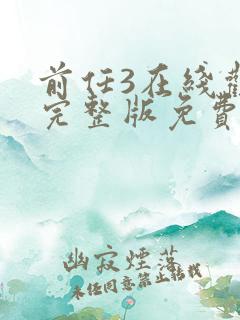 前任3在线
完整版免费
幽寂煙落
未经同意禁止转载